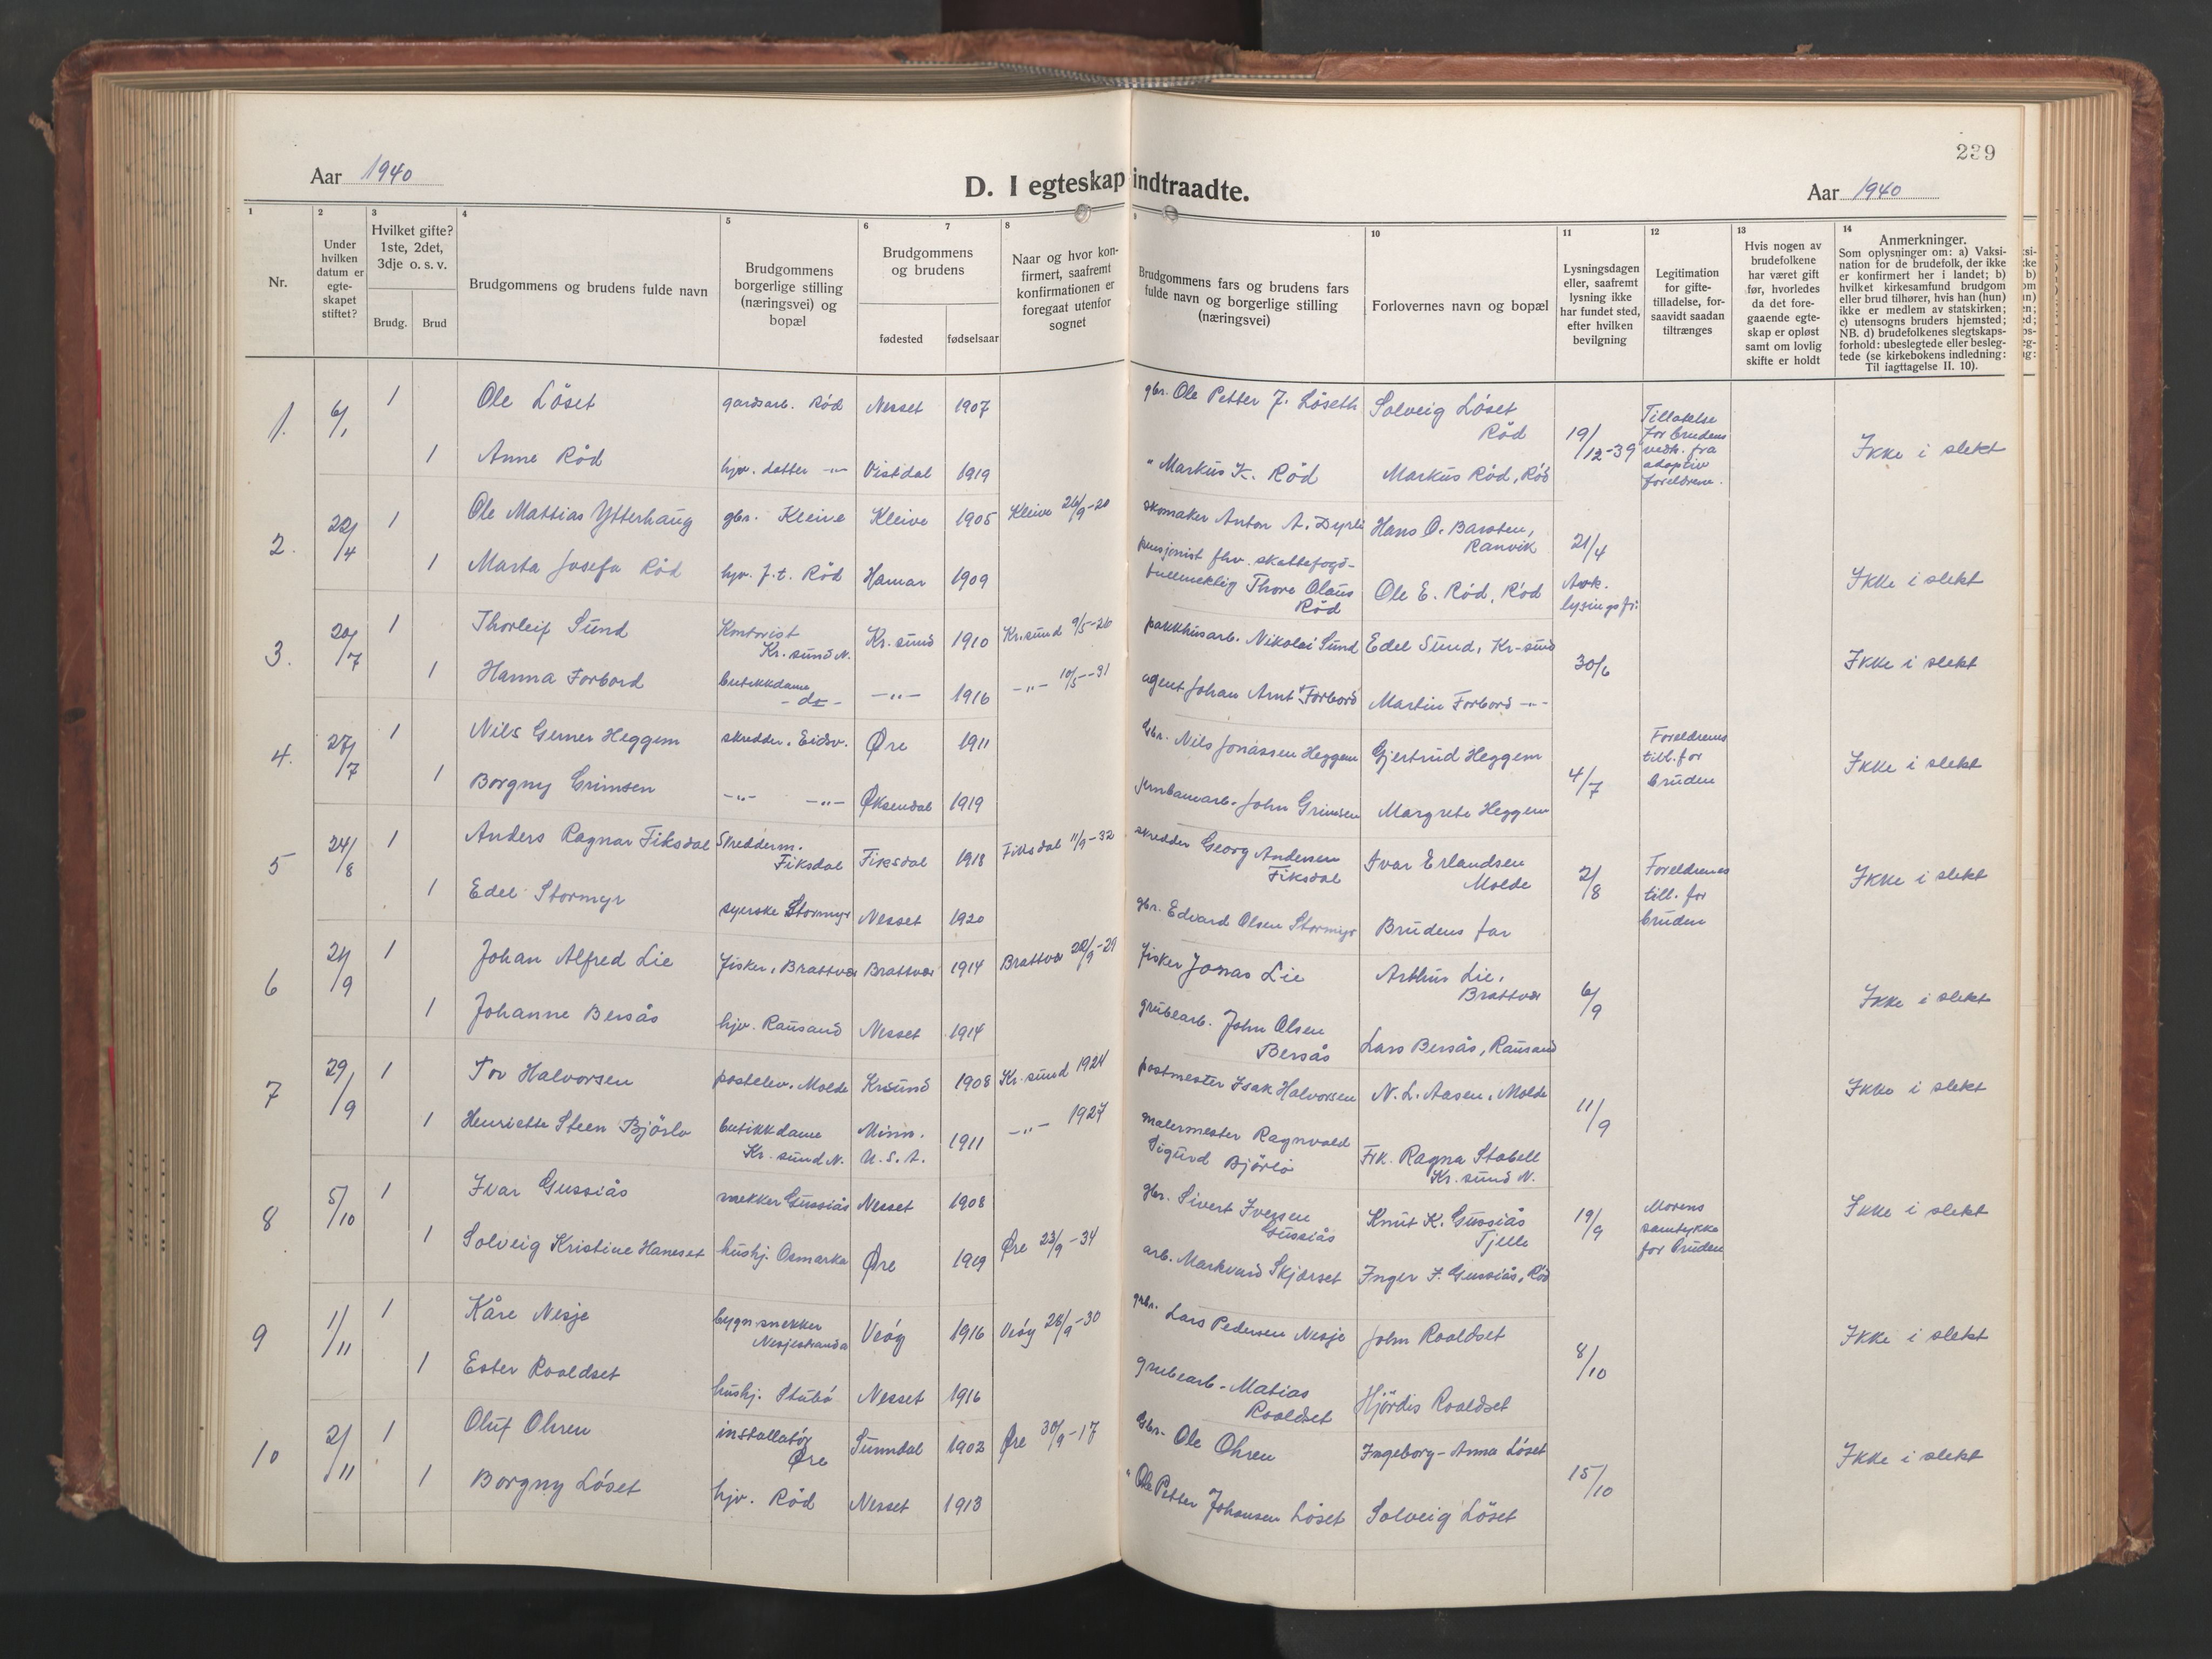 239
Aar 1940
D. I egteskap indtraadte.
Aar 1940
1
Nr.
2
Under
hvilken
datum er
egte-
skapet
stiftet?
3
Hvilket gifte?
1ste, 2det,
3dje o. s. v.
Brudg.
Brud
4
Brudgommens og brudens fulde navn
5
Brudgommens
borgerlige stilling
(næringsvei) og
bopæl
6
7
Brudgommens
og brudens
fødested
fødselsaar
8
Naar og hvor kon-
firmert, saafremt
konfirmationen er
foregaat utenfor
sognet
9
Brudgommens fars og brudens fars
fulde navn og borgerlige stilling
(næringsvei)
10
Forlovernes navn og bopæl
11
Lysningsdagen
eller, saafremt
lysning ikke
har fundet sted,
efter hvilken
bevilgning
12
Legitimation
for gifte-
tilladelse, for-
saavidt saadan
tiltrænges
13
Hvis nogen av
brudefolkene
har været gift
før, hvorledes
da det fore-
gaaende egte-
skap er opløst
samt om lovlig
skifte er holdt
14
Anmerkninger.
Som oplysninger om: a) Vaksi-
nation for de brudefolk, der ikke
er konfirmert her i landet; b)
hvilket kirkesamfund brudgom
eller brud tilhører, hvis han (hun)
ikke er medlem av statskirken;
c) utensogns bruders hjemsted;
NB. d) brudefolkenes slegtskaps-
forhold: ubeslegtede eller besleg-
tede (se kirkebokens indledning:
Til iagttagelse II. 10).
1. 6/1 1 Ole Löset gardsarb. Rød Nesset 1907 gbr. Ole Petter J. Löseth Solveig Löset
Rød
19/12-39
Tillatelse
for brudens
vedk. fra
adoptiv
foreldrene.
Ikke i slekt
1 Anne Rød hjv. datter -"- Vistdal 1919 " Markus K. Rød Markus Rød, Rød
2. 22/4 1 Ole Mattias Ytterhaug gbr. Kleive Kleive 1905 Kleive 26/9-20 skomaker Anton A. Dyrli Hans O. Barsten,
Ranvik
21/4
Avk.
lysingsfr.
Ikke i slekt
1 Marta Josefa Rød hjv. f.t. Rød Hamar 1909 pensjonist fhv. skattefogd-
fullmektig Thore Olaus
Rød
Ole E. Rød, Rød
3. 20/7 1 Thorleif Sund Kontorist
Kr. sund N.
Kr. sund 1910 Kr. sund 9/5-26 pakkhusarb. Nikolai Sund Edel Sund, Kr-sund
30/6
Ikke i slekt
1 Hanna Forbord butikkdame
- do -
-"- 1916 -"- 10/5-31 agent Johan Arnt Forbord Martin Forbord -"-
4. 27/7 1 Nils Gerner Heggem skredder, Eidsv. Øre 1911 Gbr. Nils Jonassen Heggem Gjertrud Heggem
4/7
Foreldrenes
till. for
bruden
Ikke i slekt
1 Borgny Grimsen -"- -"- Øksendal 1919 jernbanearb. John Grimsen Margrete Heggem
5 24/8 1 Anders Ragnar Fiksdal Skredderm.
Fiksdal
Fiksdal 1918 Fiksdal 11/9-32 skredder Georg Andersen
Fiksdal
Ivar Erlandsen
Molde
2/8
Foreldrenes
till. for
bruden
Ikke i slekt
1 Edel Stormyr syerske Stormyr Nesset 1920 gbr. Edvard Olsen Stormyr Brudens far
6 24/9 1 Johan Alfred Lie fisker, Brattvær Brattvær 1914 Brattvær 22/9-29 fisker Jonas Lie Arthur Lie,
Brattvær
6/9
Ikke i slekt
1 Johanne Bersås hjv. Rausand Nesset 1914 grubearb. John Olsen
Bersås
Lars Bersås, Rausand
7 29/9 1 Tor Halvorsen postelev. Molde Krsund 1908 Kr. sund 1924 postmester Isak Halvorsen N. L. Aasen, Molde
11/9
Ikke i slekt
1 Henriette Steen Björlo butikkdame
Kr. sund N.
Minn.
U. S. A.
1911 -"- 1927 malermester Ragnvald
Sigurd Björlo
Frk. Ragna Stabell
Kr. sund N.
8 5/10 1 Ivar Gussiås snekker Gussiås Nesset 1908 gbr. Sivert Iversen
Gussiås
Knut K. Gussiås
Tjelle
19/9
Morens
samtykke
for bruden
Ikke i slekt
1 Solveig Kristine Haneset hushj. Osmarka Øre 1919 Øre 23/9-34 arb. Markvard Skjørset Inger I. Gussiås, Rød
9 1/11 1 Kåre Nesje bygn.snekker
Nesjestranda
Veøy 1916 Veøy 28/9-30 gbr. Lars Pedersen Nesje John Roaldset
8/10
Ikke i slekt
1 Ester Roaldset hushj. Stubø Nesset 1916 grubearb. Matias
Roaldset
Hjördis Roaldset
10 2/11 1 Oluf Ohren installatør
Øre
Sunndal 1902 Øre 30/9-17 Gbr. Ole Ohren Ingeborg-Anna Löset
15/10
Ikke i slekt
1 Borgny Löset hjv. Rød Nesset 1913 " Ole Petter Johansen Löset Solveig Löset